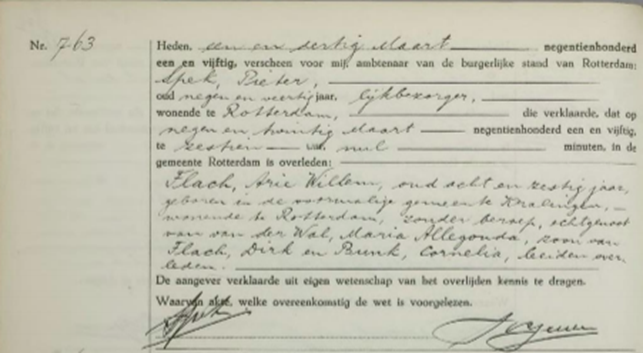 Nr. 763
Heden, een en dertig Maart negentienhonderd
een en vijftig, verscheen voor mij, ambtenaar van de burgerlijke stand van Rotterdam:
Spek, Pieter,
oud negen en veertig jaar, lijkbezorger,
wonende te Rotterdam, die verklaarde, dat op
negen en twintig Maart negentienhonderd een en vijftig,
te zestien uur nul minuten, in de
gemeente Rotterdam is overleden:
Flach, Arie Willem, oud acht en zestig jaar,
geboren in de voormalige gemeente Kralingen,
wonende te Rotterdam, zonder beroep, echtgenoot
van van der Wal, Maria Allegonda, zoon van
Flach, Dirk en Bunk, Cornelia, beiden over
leden.
De aangever verklaarde uit eigen wetenschap van het overlijden kennis te dragen.
Waarvan akte, welke overeenkomstig de wet is voorgelezen.
Spek